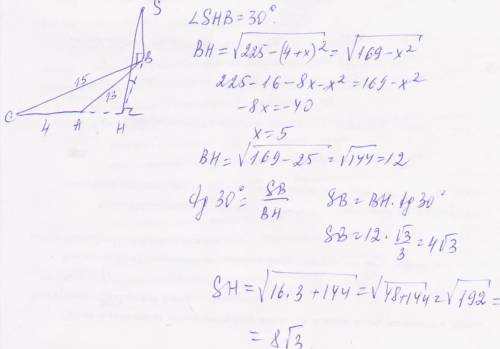 ∠SHB = 30°.
BH = √(225 − (4+x)²) = √(169 − x²)
225 − 16 − 8x − x² = 169 − x²
−8x = −40
x = 5
BH = √(169 − 25) = √144 = 12
tg 30° = SB/BH
SB = BH · tg 30°
SB = 12 · √3/3 = 4√3
SH = √(16·3 + 144) = √(48 + 144) = √192 =
= 8√3
S
B
15
13
C
4
A
H